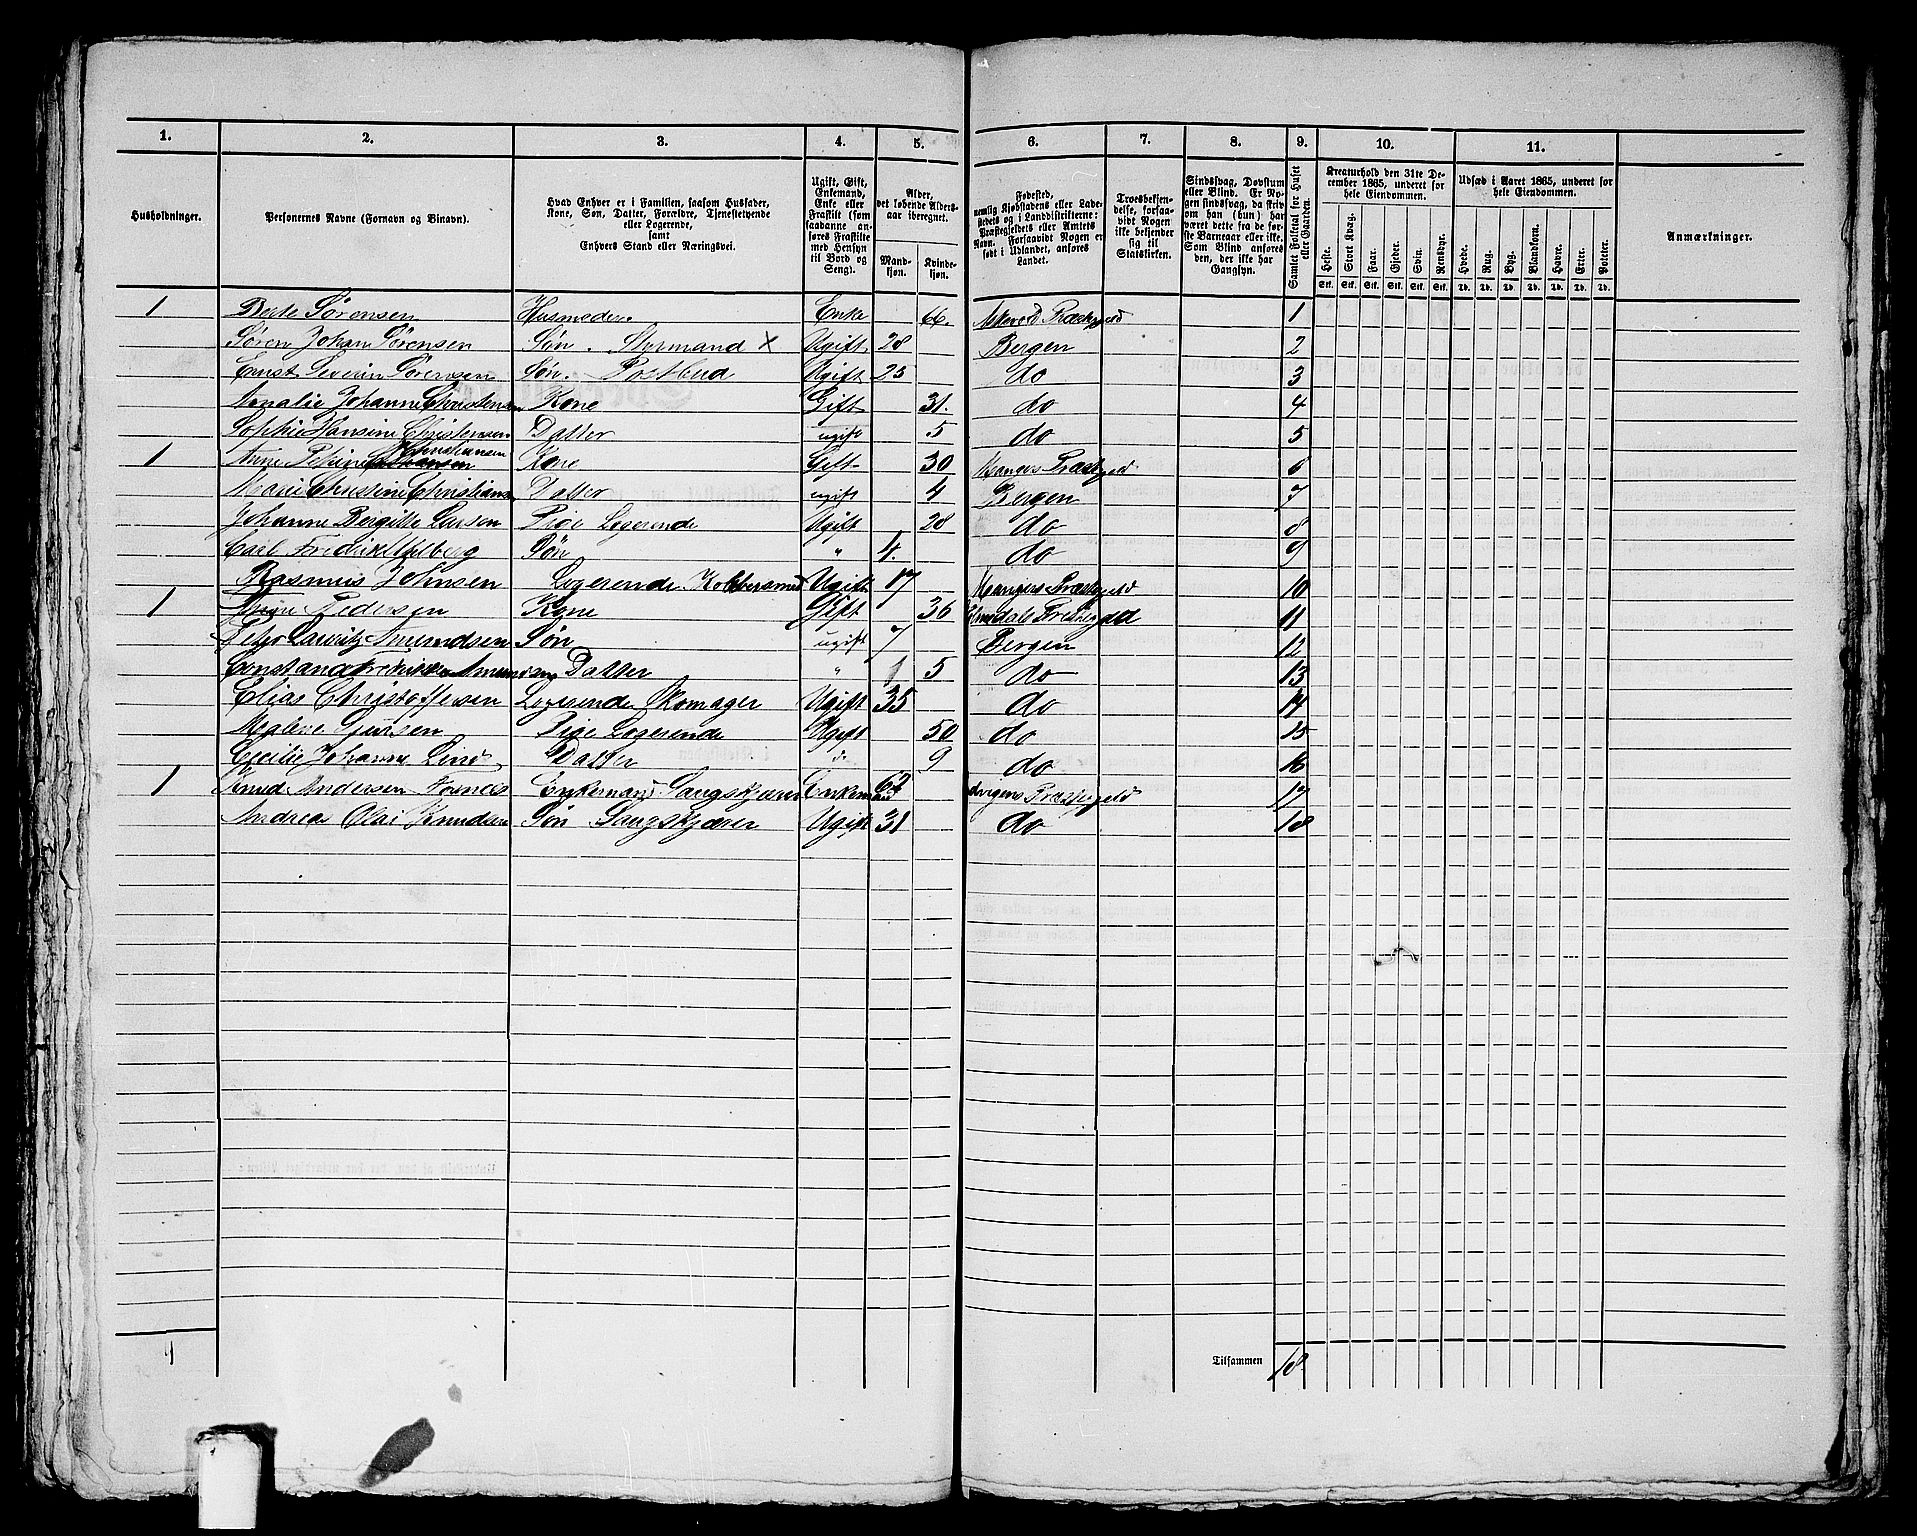 1. 2. 3. 4. 5. 6. 7. 8. 9. 10. 11.
Husholdninger.
Personernes Navne (Fornavn og Binavn).
Hvad Enhver er i Familien, saasom Husfader, Kone, Søn, Datter, Forældre, Tjenestetyende eller Logerende, samt Enhvers Stand eller Næringsvei.
Ugift, Gift, Enkemand, Enke eller Fraskilt (som saadanne anføres Fraskilte med Hensyn til Bord og Seng).
Alder, det løbende Aldersaar iberegnet.
Mandkjøn. Kvindekjøn.
Fødested, nemlig Kjøbstadens eller Ladestedets og i Landdistrikterne: Præstegjeldets eller Amtets Navn. Forsaavidt Nogen er født i Udlandet, anføres Landet.
Troesbekjendelse, forsaavidt Nogen ikke bekjender sig til Statskirken.
Sindssvag, Døvstum eller Blind. Er Nogen sindssvag, da skrives om han (hun) har været dette fra de første Barneaar eller ikke. Som Blind anføres den, der ikke har Gangsyn.
Samlet Folketal for Huset eller Gaarden.
Kreaturhold den 31te December 1865, underet for hele Eiendommen.
Heste. Stort Kvæg. Faar. Gjeder. Svin. Rensdyr.
Stk. Stk. Stk. Stk. Stk. Stk.
Udsæd i Aaret 1865, underet for hele Eiendommen.
Hvede. Rug. Byg. Blandkorn. Havre. Erter. Poteter.
Td. Td. Td. Td. Td. Td. Td.
Anmærkninger.
1 Berte Sørensen Husmoder Enke 66. Præstegjeld 1
Søren Johan Sørensen Søn. Styrmand x Ugift 28 Bergen 2
Ernst Severin Sørensen Søn. Postbud Ugift 25 do 3
Amalie Johanne Christensen Kone Gift 31. do 4
Sophie Hansine Christensen Datter ugift 5 do 5
1 Anne Christiansen Kone Gift 30 Mangers Præstgjeld 6
Marie Christine Christiansen Datter ugift 4 Bergen 7
Johanne Bergitte Larsen Pige Logerende Ugift 28 do 8
Carl Fredrik Søn " 4. do 9
Rasmus Johnsen Logerende Kobbersmed Ugift 17 Mangers Præstgjeld 10
1 Pedersen Kone Gift 36 Præstegjeld 11
Peter Lauritz Amundsen Søn ugift 7 Bergen 12
Datter " 5 do 13
Elias Christoffersen Logerende Skomager Ugift 35 do 14
Malene Pige Logerende Ugift 50 do 15
Cecilie Johanne Lind Datter 9 do 16
1 Knud Andersen Enkemand Saugskjærer Enkemand 62 Præstegjeld 17
Andreas Olai Knudsen Søn Saugskjærer Ugift 31 do 18
4 Tilsammen 18